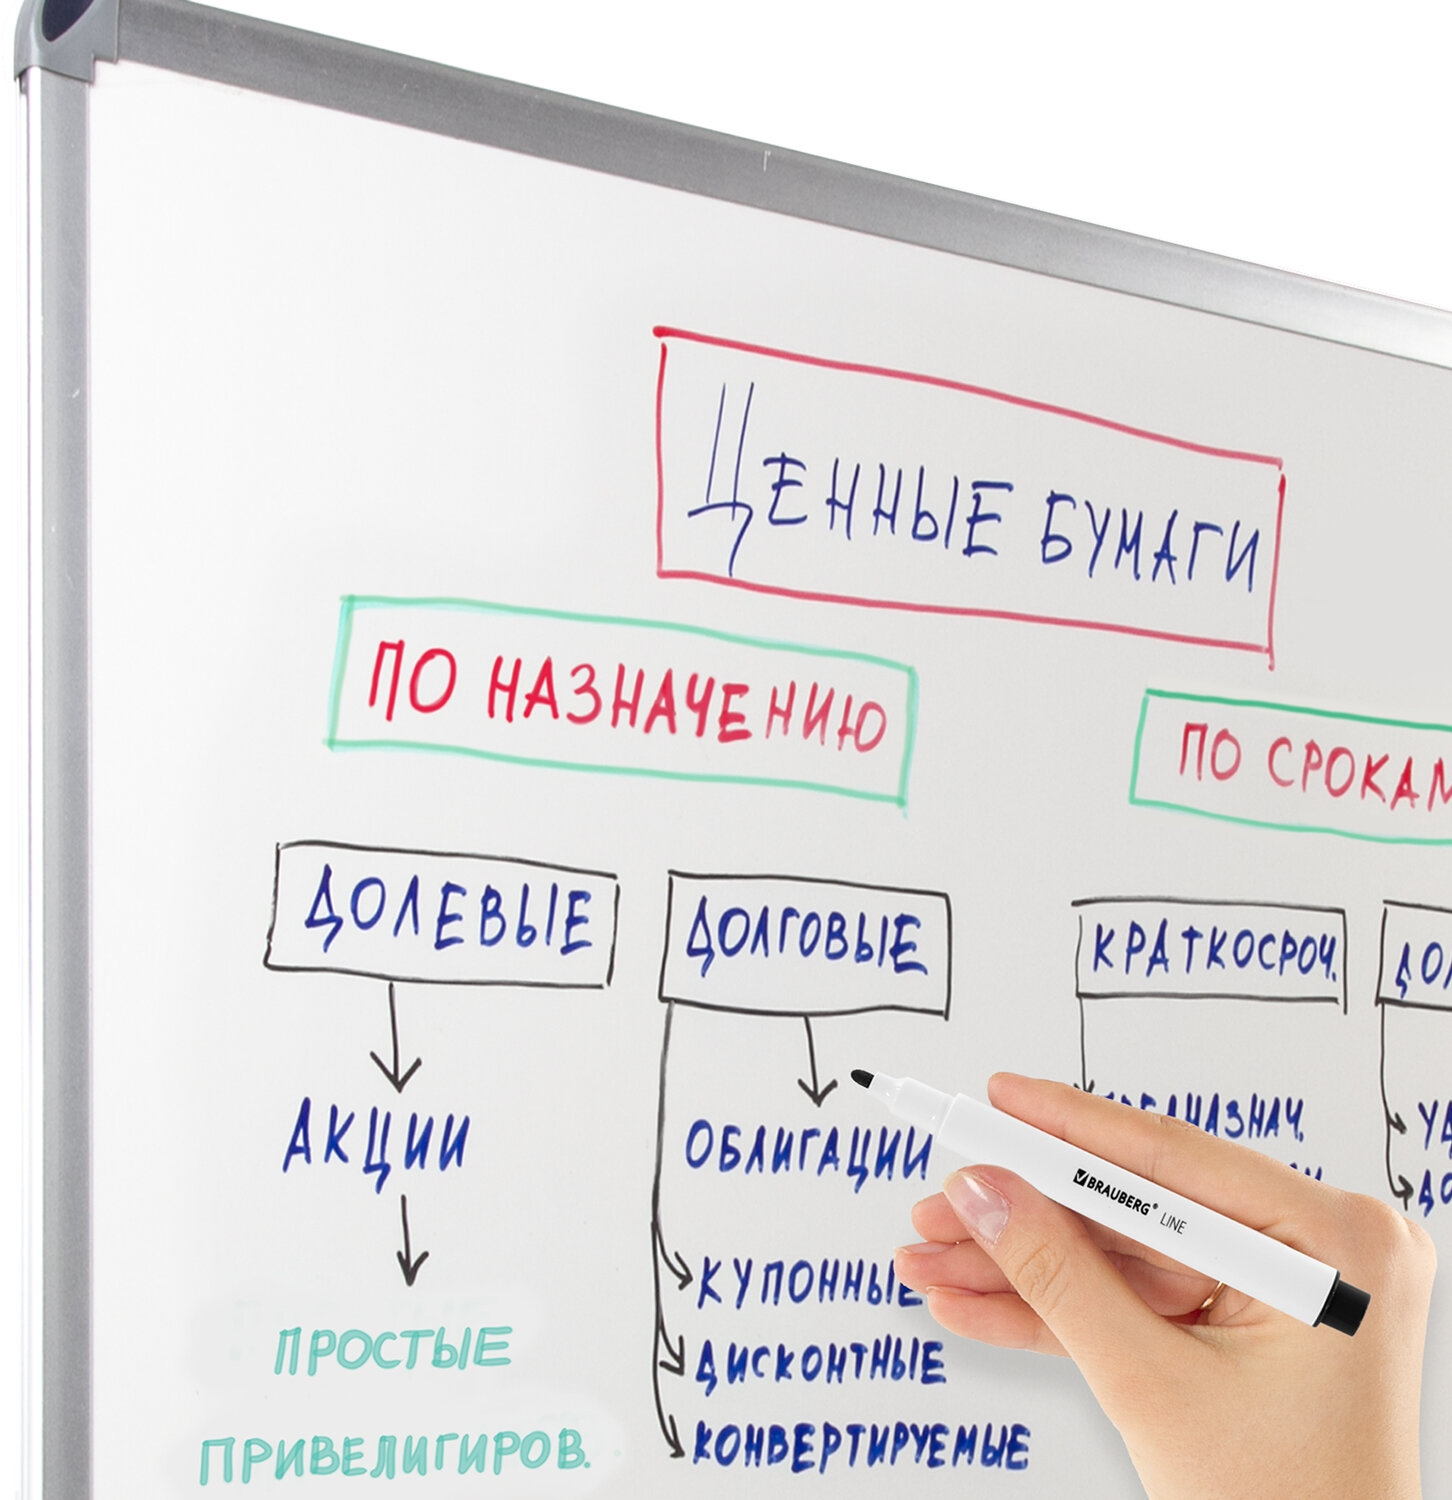 ЦЕННЫЕ БУМАГИ
ПО НАЗНАЧЕНИЮ
ПО СРОКАМ
ДОЛЕВЫЕ
ДОЛГОВЫЕ
КРАТКОСРОЧ.
АКЦИИ
ОБЛИГАЦИИ
ПРОСТЫЕ
ПРИВЕЛИГИРОВ.
КУПОННЫЕ
ДИСКОНТНЫЕ
КОНВЕРТИРУЕМЫЕ
BRAUBERG® LINE